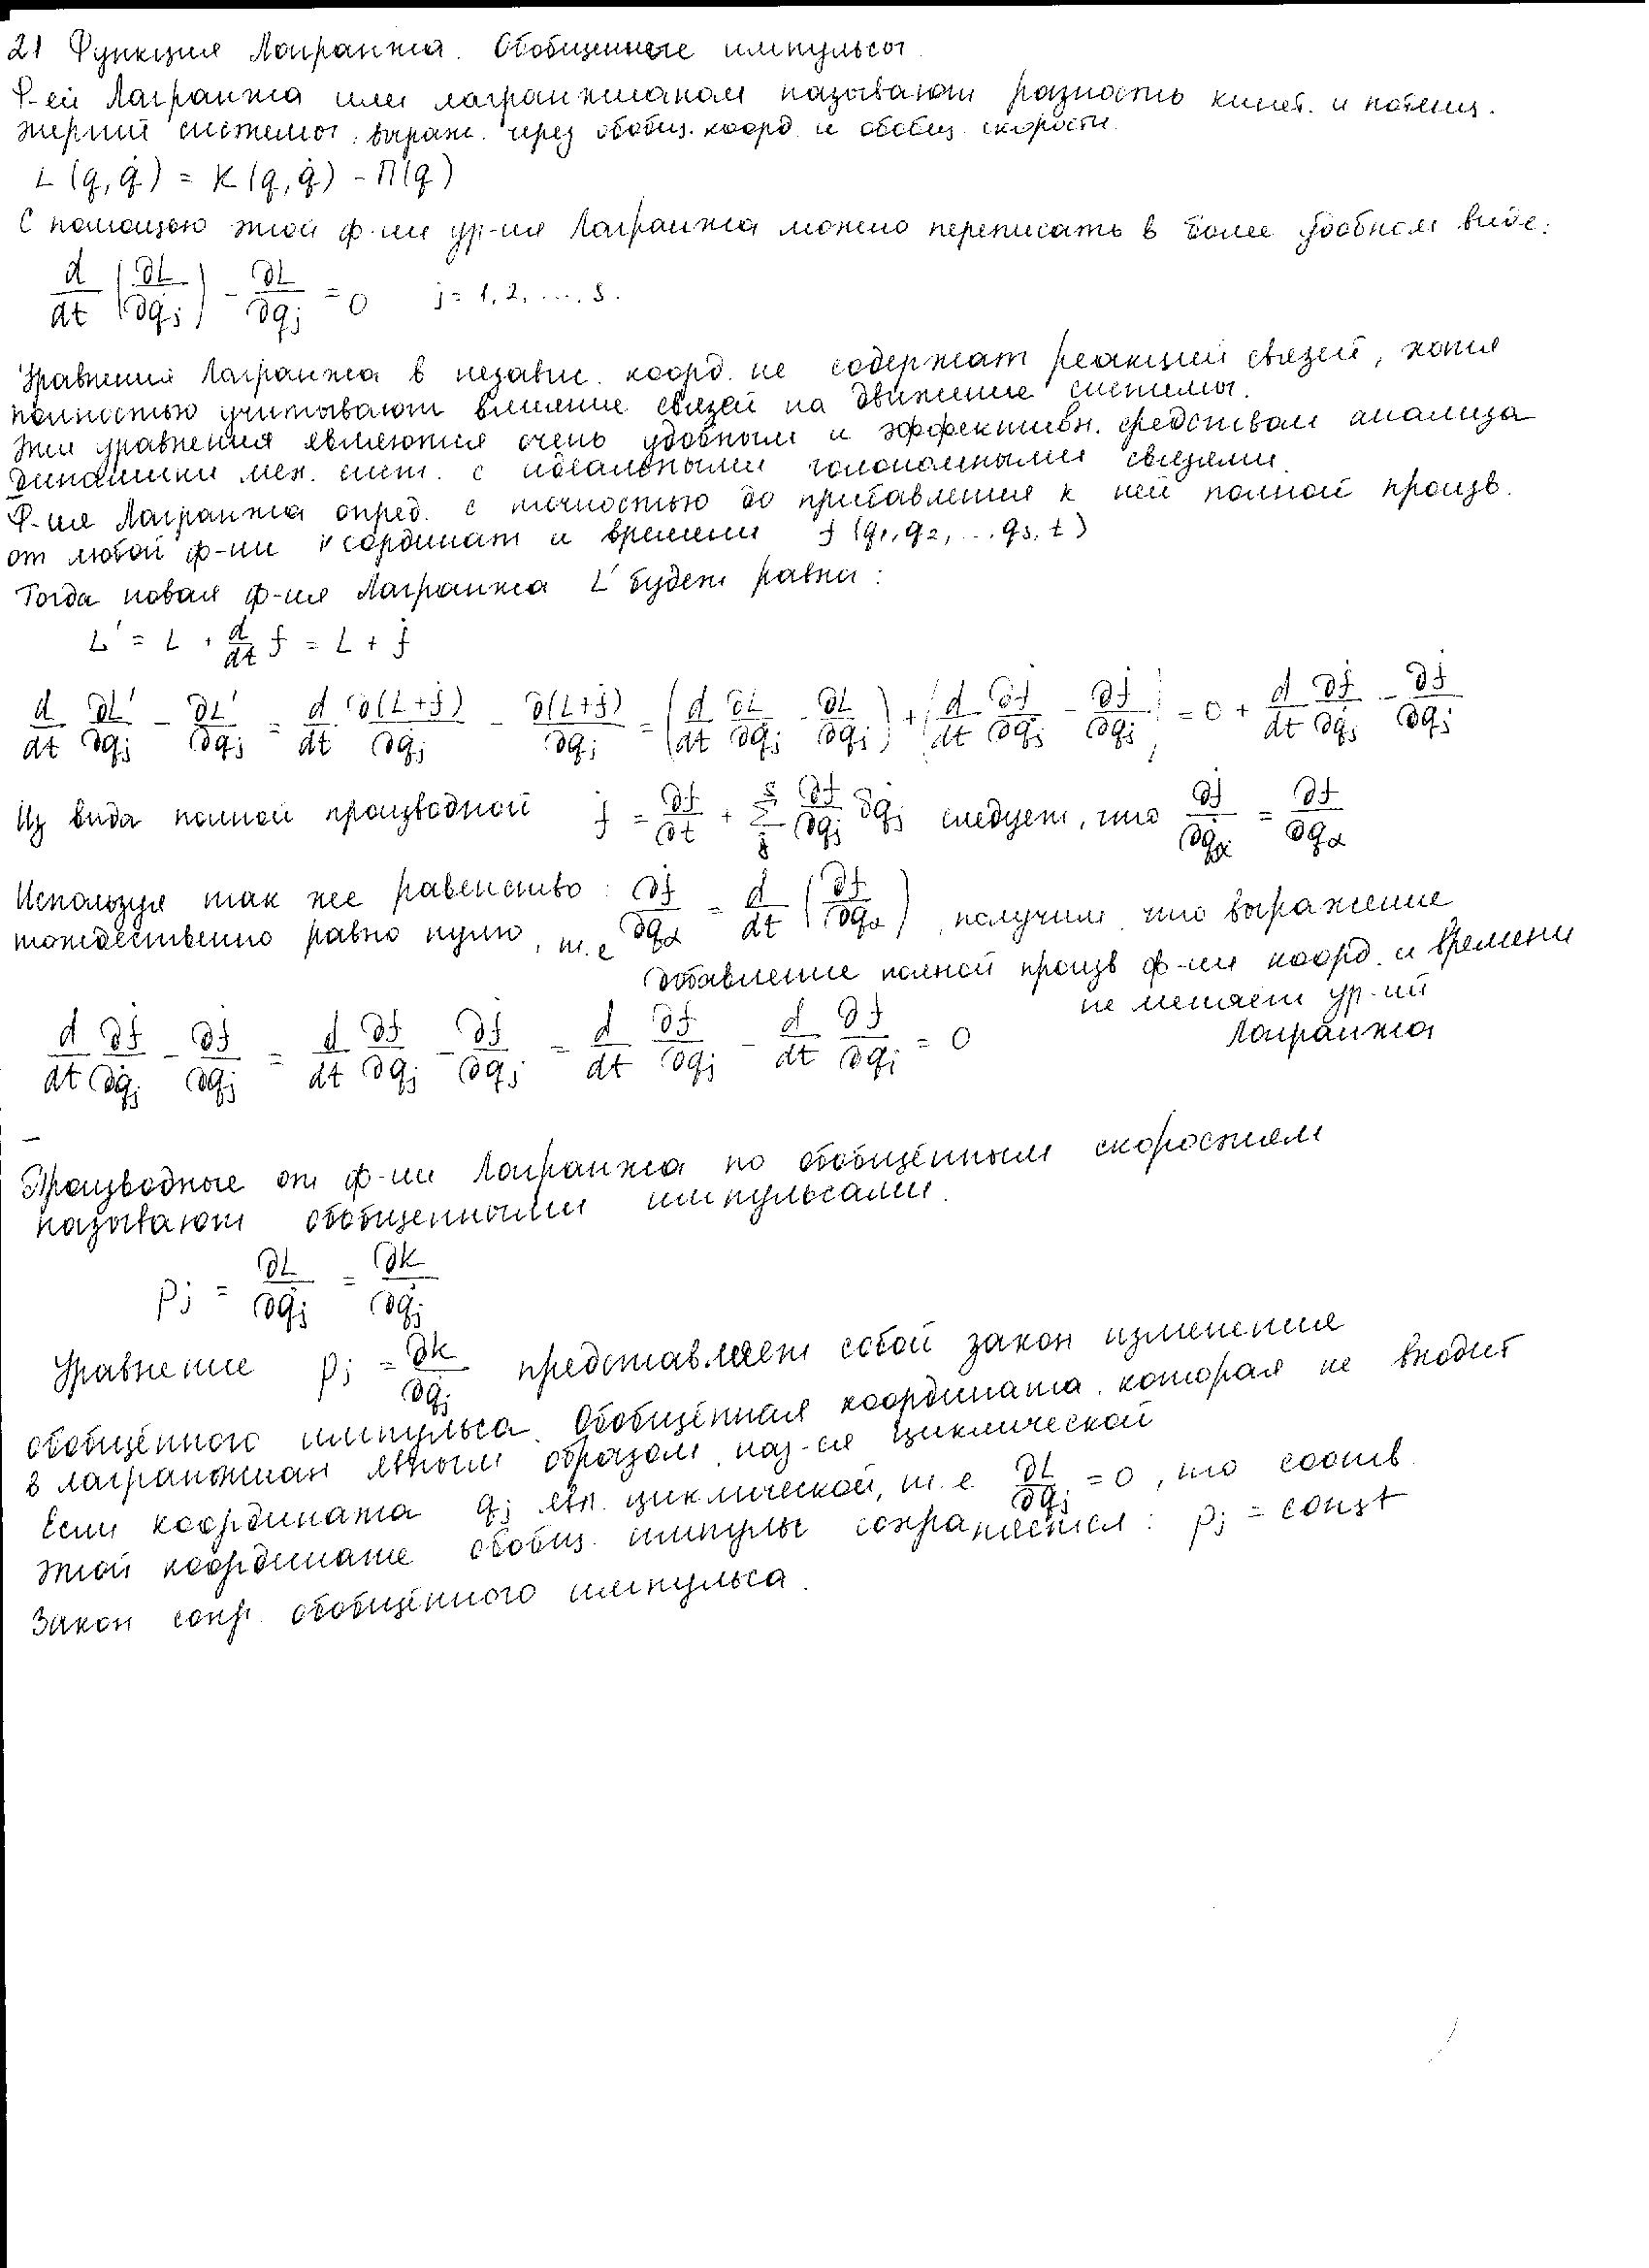 21 Функция Лагранжа. Обобщенные импульсы.
Ф-ей Лагранжа или лагранжианом называют разность кинет. и потенц.
энергий системы, выраж. через обобщ. коорд. и обобщ. скорости.
L(q, q̇) = K(q, q̇) - П(q)
С помощью этой ф-ии ур-ия Лагранжа можно переписать в более удобном виде:
d/dt (∂L/∂q̇j) - ∂L/∂qj = 0 j = 1, 2, ..., s.
Уравнения Лагранжа в независ. коорд. не содержат реакций связей, хотя
полностью учитывают влияние связей на движение системы.
Эти уравнения являются очень удобным и эффективн. средством анализа
динамики мех. сист. с идеальными голономными связями.
Ф-ия Лагранжа опред. с точностью до прибавления к ней полной произв.
от любой ф-ии координат и времени f(q1, q2, ... qs, t)
Тогда новая ф-ия Лагранжа L' будет равна:
L' = L + d/dt f = L + ḟ
d/dt ∂L'/∂q̇j - ∂L'/∂qj = d/dt ∂(L+ḟ)/∂q̇j - ∂(L+ḟ)/∂qj = (d/dt ∂L/∂q̇j - ∂L/∂qj) + (d/dt ∂ḟ/∂q̇j - ∂ḟ/∂qj) = 0 + d/dt ∂ḟ/∂q̇j - ∂ḟ/∂qj
Из вида полной производной ḟ = ∂f/∂t + Σ ∂f/∂qj ∂qj следует, что ∂ḟ/∂q̇α = ∂f/∂qα
Используя так же равенство: ∂ḟ/∂qα = d/dt (∂f/∂qα), получим, что выражение
тождественно равно нулю, т.е добавление полной произв ф-ии коорд. и времени
не меняет ур-ий
Лагранжа
d/dt ∂ḟ/∂q̇j - ∂ḟ/∂qj = d/dt ∂f/∂qj - ∂ḟ/∂qj = d/dt ∂f/∂qj - d/dt ∂f/∂qj = 0
Производные от ф-ии Лагранжа по обобщённым скоростям
называют обобщенными импульсами.
pj = ∂L/∂q̇j = ∂k/∂q̇j
Уравнение pj = ∂k/∂q̇j представляет собой закон изменения
обобщённого импульса. Обобщённая координата, которая не входит
в лагранжиан явным образом, наз-ся циклической
Если координата qj явл. циклической, т.е ∂L/∂qj = 0, то соотв.
этой координате обобщ. импульс сохраняется: pj = const
Закон сохр. обобщённого импульса.